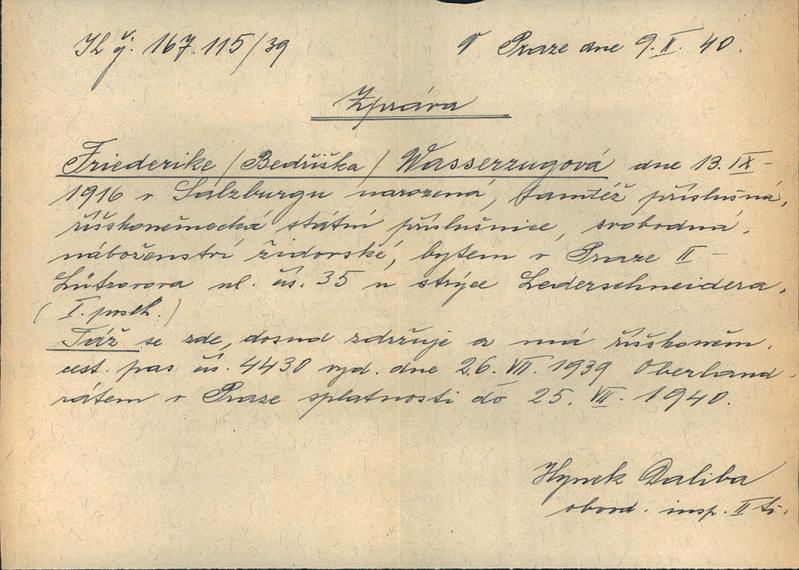 Ik čj. 167.115/39 V Praze dne 9. II. 40.
Zpráva
Friederike /Bedřiška/ Wasserzugová dne 13. IX-
1916 v Salzburgu narozená, tamtéž příslušná,
říšskoněmecká státní příslušnice, svobodná,
náboženství židovské, bytem v Praze II-
Lützovova ul. čís. 35 u strýce Lederschneidera.
(I. posch.)
Táž se zde, dosud zdržuje a má říškoněm.
cest. pas čís. 4430 vyd. dne 26. VII. 1939 Oberland-
rátem v Praze splatnosti do 25. VII. 1940.
Hynek Daliba
obvod. insp. II tř.